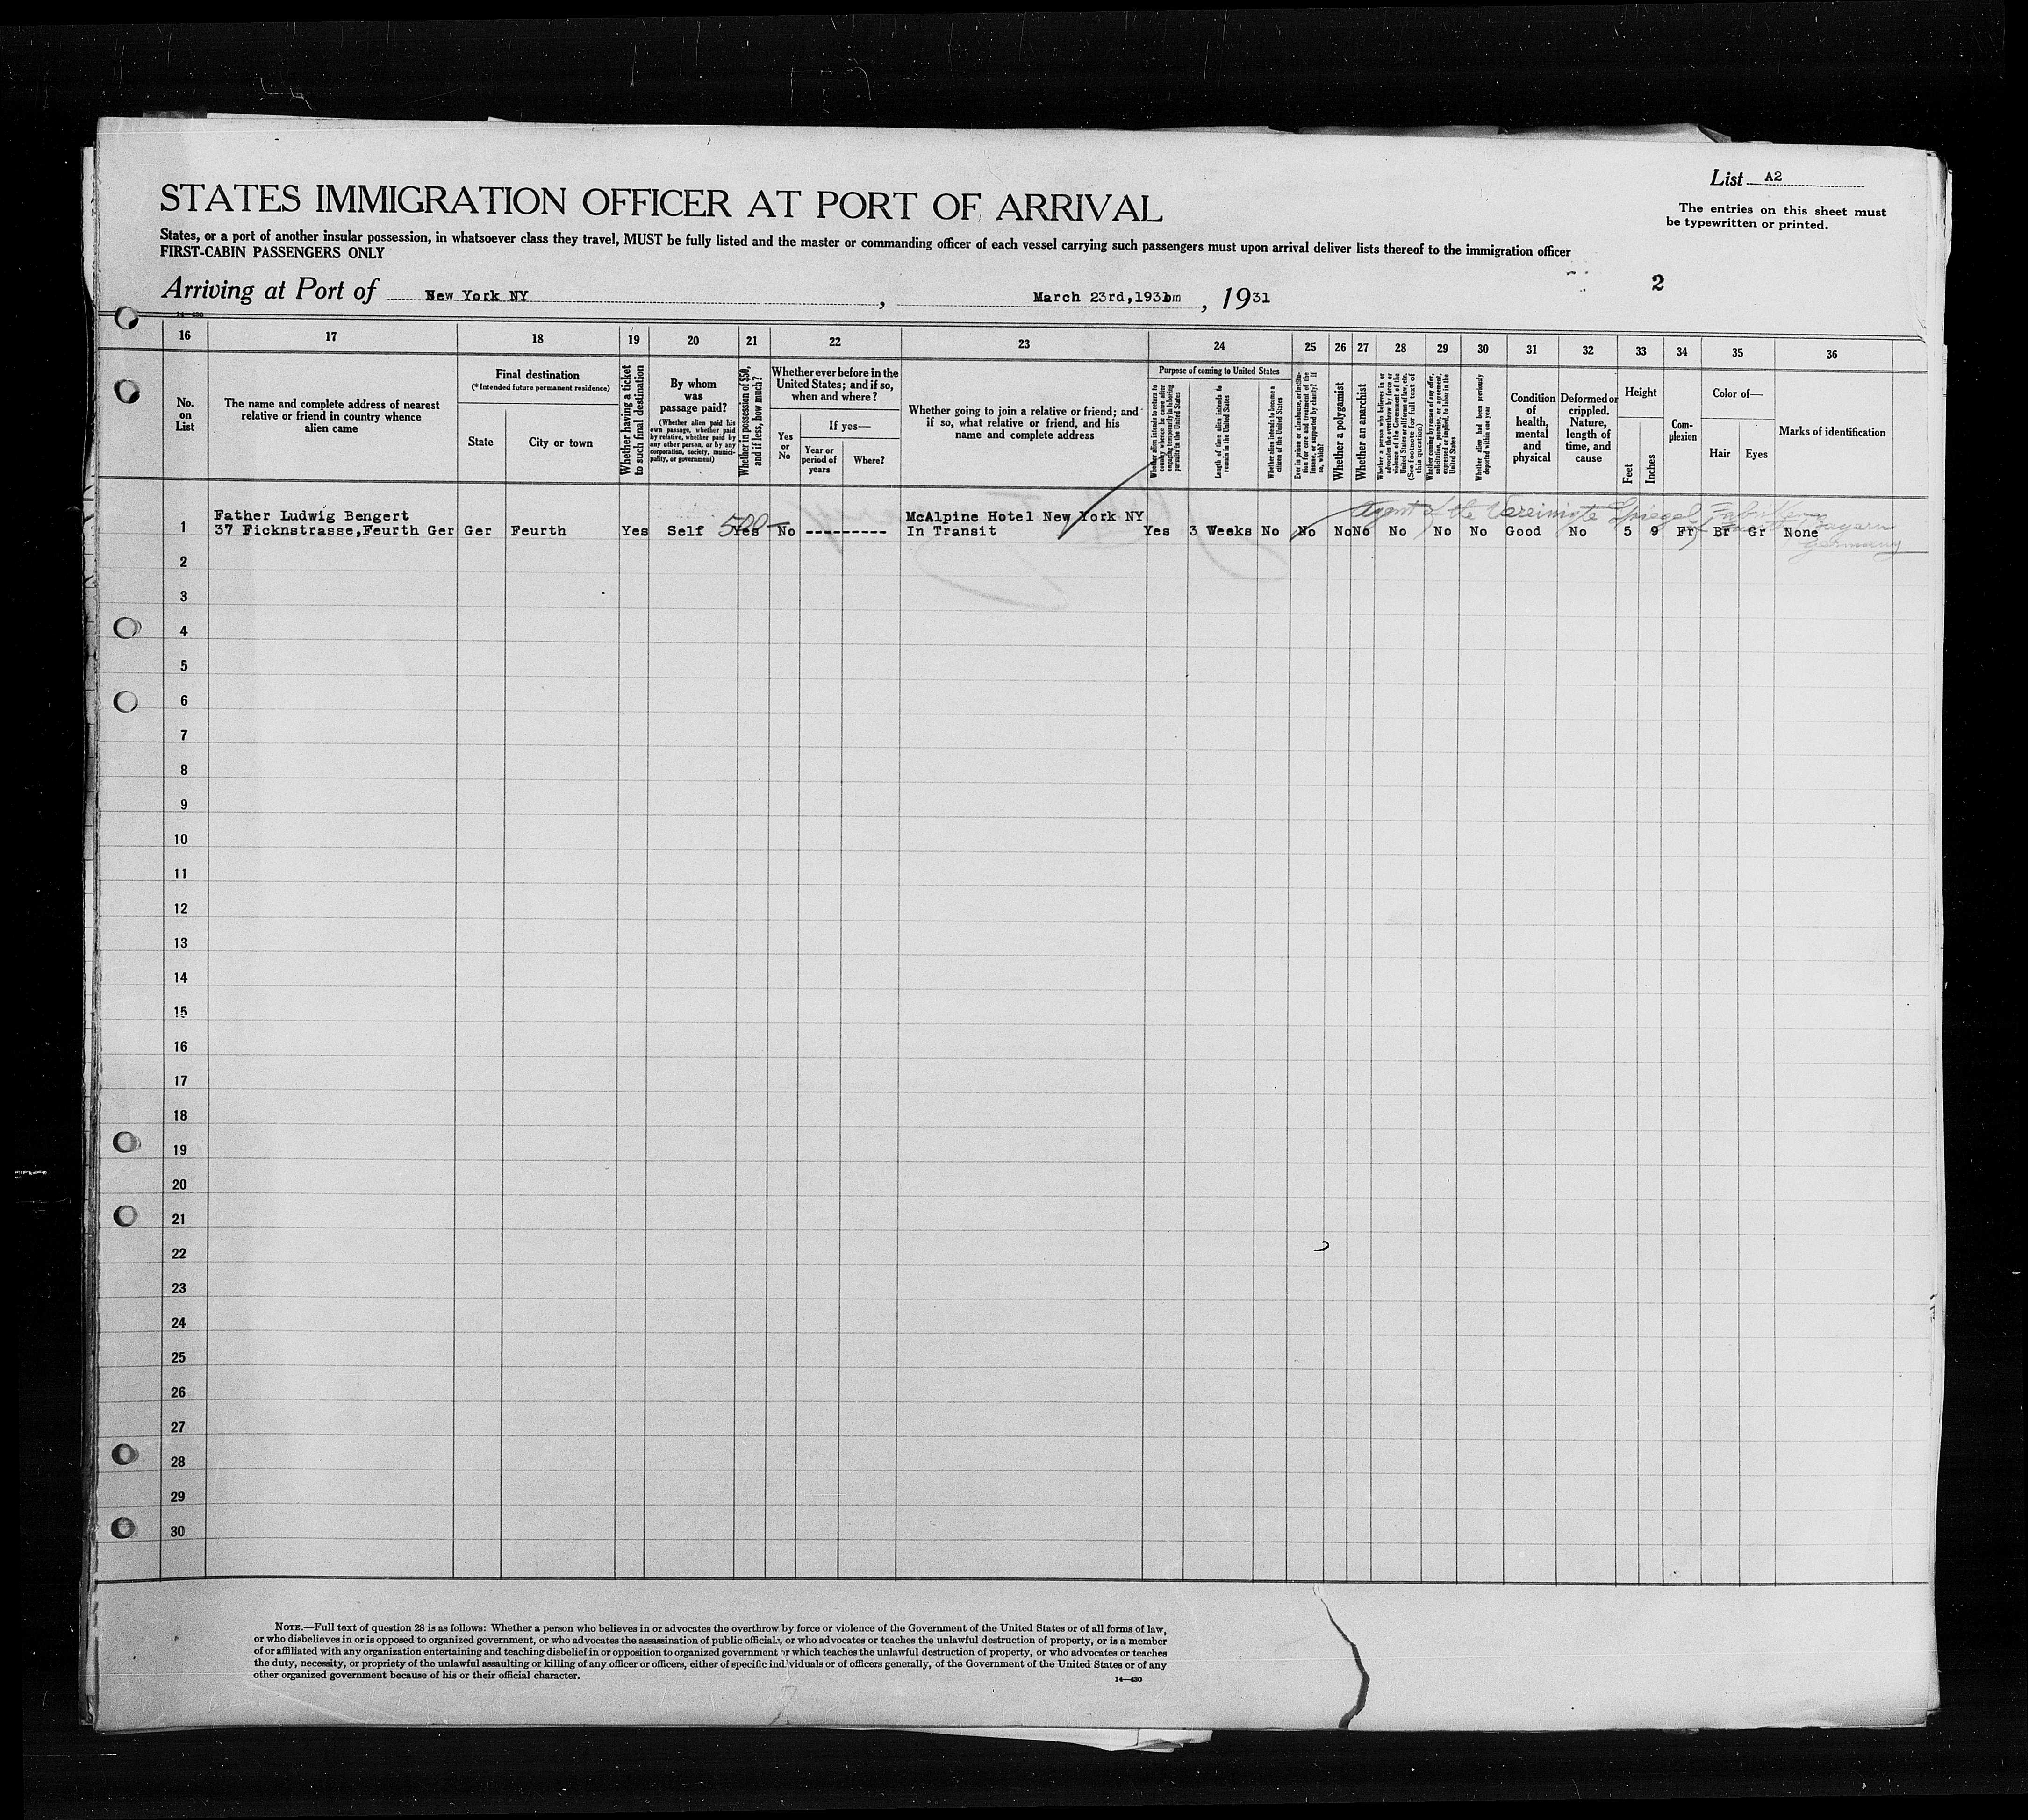 List A2
The entries on this sheet must
be typewritten or printed.
STATES IMMIGRATION OFFICER AT PORT OF ARRIVAL
States, or a port of another insular possession, in whatsoever class they travel, MUST be fully listed and the master or commanding officer of each vessel carrying such passengers must upon arrival deliver lists thereof to the immigration officer
FIRST-CABIN PASSENGERS ONLY
2
Arriving at Port of New York NY, March 23rd, 1931, 1931
14—430
16 17 18 19 20 21 22 23 24 25 26 27 28 29 30 31 32 33 34 35 36
No.
on
List
The name and complete address of nearest
relative or friend in country whence
alien came
Final destination
(*Intended future permanent residence)
State
City or town
Whether having a ticket
to such final destination
By whom
was
passage paid?
(Whether alien paid his
own passage, whether paid
by relative, whether paid by
any other person, or by any
corporation, society, munici-
pality, or government)
Whether in possession of $50,
and if less, how much?
Whether ever before in the
United States; and if so,
when and where?
Yes
or
No
If yes—
Year or
period of
years
Where?
Whether going to join a relative or friend; and
if so, what relative or friend, and his
name and complete address
Purpose of coming to United States
Whether alien intends to return to
country whence he came after
engaging temporarily in laboring
pursuits in the United States
Length of time alien intends to
remain in the United States
Whether alien intends to become a
citizen of the United States
Ever in prison or almshouse, or institu-
tion for care and treatment of the
insane, or supported by charity? If
so, which?
Whether a polygamist
Whether an anarchist
Whether a person who believes in or
advocates the overthrow by force or
violence of the Government of the
United States or all forms of law, etc.
(See footnote for full text of
this question)
Whether coming by reason of any offer,
solicitation, promise, or agreement,
expressed or implied, to labor in the
United States
Whether alien had been previously
deported within one year
Condition
of
health,
mental
and
physical
Deformed or
crippled.
Nature,
length of
time, and
cause
Height
Feet
Inches
Com-
plexion
Color of—
Hair
Eyes
Marks of identification
Agent of the Vereinigte Spiegel Fabriken
Bayern
Germany
Father Ludwig Bengert
1 37 Ficknstrasse,Feurth Ger Ger Feurth Yes Self 500— Yes No ---------- McAlpine Hotel New York NY
In Transit Yes 3 Weeks No No No No No No No Good No 5 9 Fr Br Gr None
2
3
4
5
6
7
8
9
10
11
12
13
14
15
16
17
18
19
20
21
22
23
24
25
26
27
28
29
30
NOTE.—Full text of question 28 is as follows: Whether a person who believes in or advocates the overthrow by force or violence of the Government of the United States or of all forms of law,
or who disbelieves in or is opposed to organized government, or who advocates the assassination of public officials, or who advocates or teaches the unlawful destruction of property, or is a member
of or affiliated with any organization entertaining and teaching disbelief in or opposition to organized government or which teaches the unlawful destruction of property, or who advocates or teaches
the duty, necessity, or propriety of the unlawful assaulting or killing of any officer or officers, either of specific individuals or of officers generally, of the Government of the United States or of any
other organized government because of his or their official character.
14—430